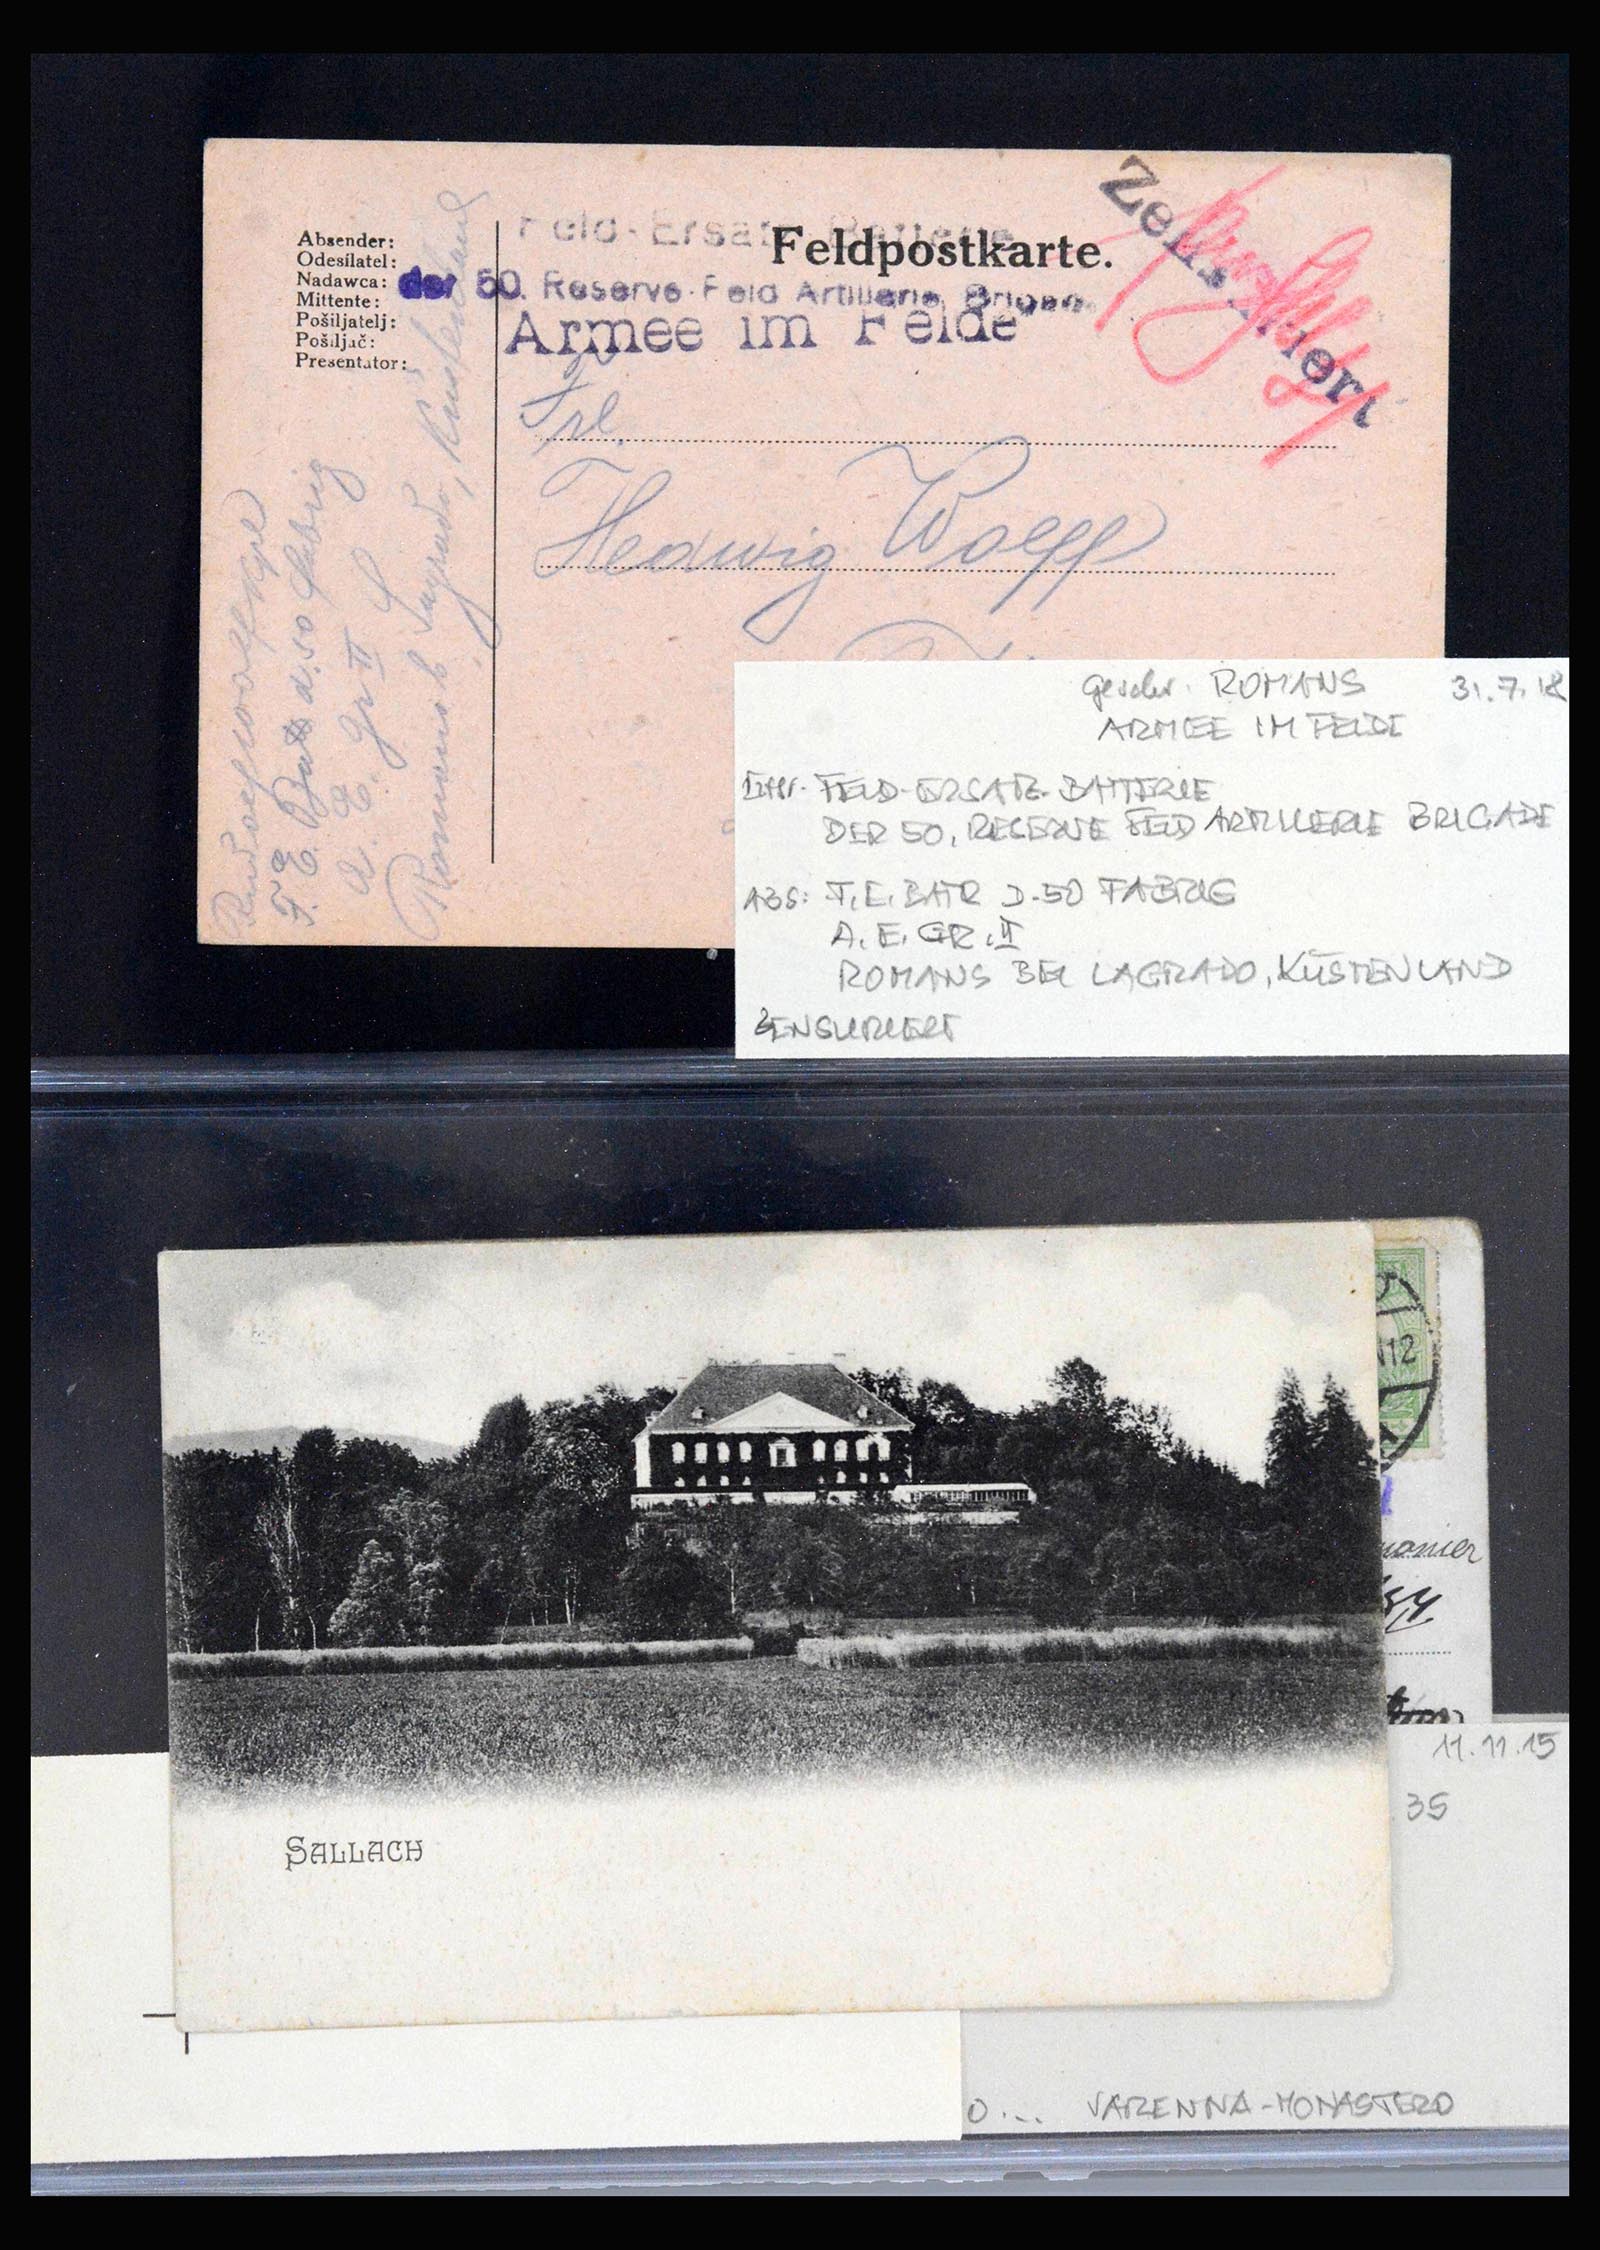 Absender:
Odesílatel:
Nadawca:
Mittente:
Pošiljatelj:
Pošiljač:
Presentator:
Feld-Ersatz Batterie
Feldpostkarte.
der 50. Reserve-Feld Artillerie Brigade
Armee im Felde
Zensuriert
Frl.
Hedwig Woepp
F. E. Batt d. 50 Fabrig
A. E. Gr II
Romans b Lagrado, Küstenland
geschr. ROMANS 31.7.18
ARMEE IM FELDE
FELD-ERSATZ-BATTERIE
DER 50. RESERVE FELD ARTILLERIE BRIGADE
ABS: F.E. BATR D.50 FABRIG
A.E. GR. II
ROMANS BEI LAGRADO, KÜSTENLAND
ZENSURIERT
12
SALLACH
11.11.15
35
O... VARENNA-MONASTERO